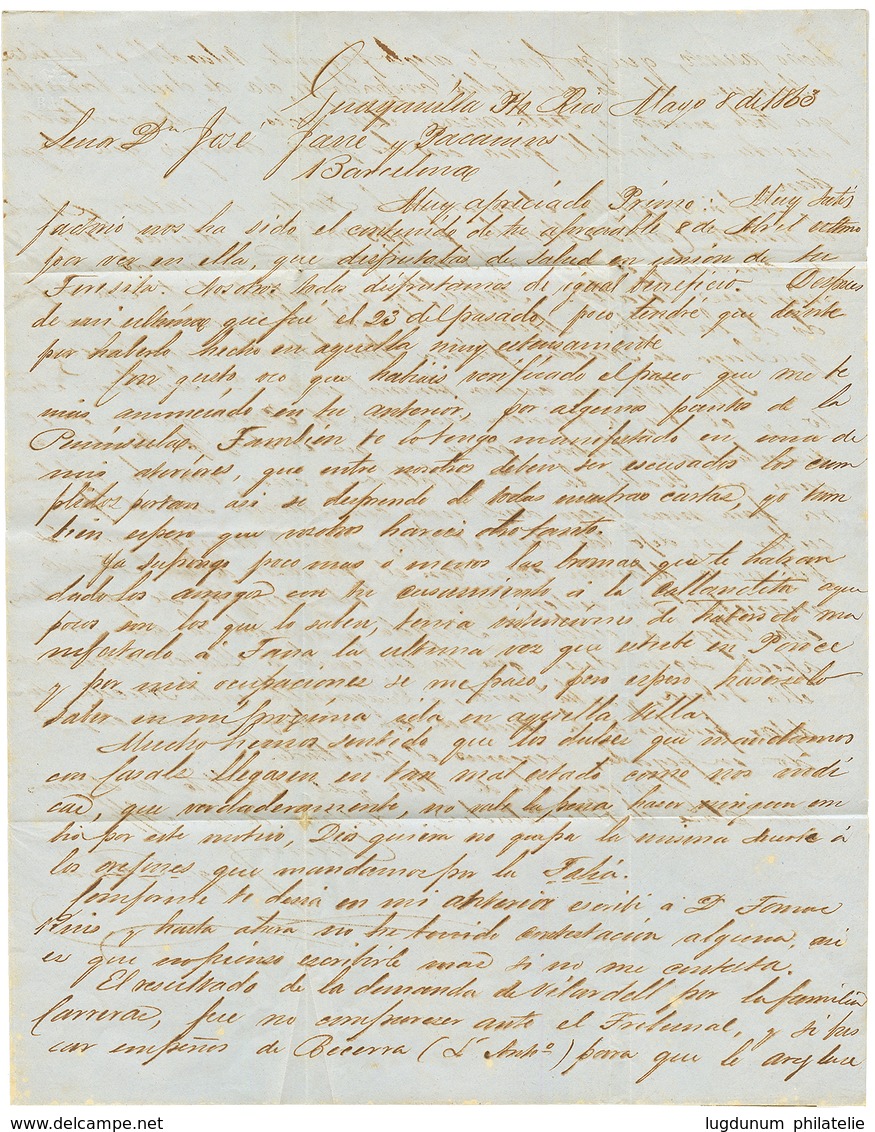 Guayanilla Pto Rico Mayo 8 de 1863
Señor Dn José Farré y Pacanins
Barcelona
Muy apreciado Primo: Muy satis
factorio nos ha sido el contenido de tu apreciable 8 de Abril
por ver en ella que disfrutabas de salud en union de tu
Teresita. Nosotros todos disfrutamos de igual beneficio. Despues
de mi ultima que fué el 23 del pasado, poco tendré que decirte
por haberlo hecho en aquella muy estensamente
Con gusto veo que habiais verificado el paseo que me te
nias anunciado en tu anterior, por algunos puntos de la
Peninsula. Tambien te lo tengo manifestado en una de
mis anteriores, que entre nosotros deben ser escusados los cum
plidos, asi se desprende de todas nuestras cartas, yo tam
bien espero que vosotros hareis otro tanto.
Ya supongo poco mas o menos las bromas que te habran
dado los amigos con tu casamiento á la aqui
pocos son los que lo saben, tenia intenciones de haberselo ma
nifestado á la ultima vez que estube en Ponce
y por mis ocupaciones se me paso, pero espero hacerselo
saber en mi proxima ida en aquella Villa.
Mucho hemos sentido que los dulces que mandamos
con Casals llegasen en tan mal estado como nos indi
cas, que verdaderamente, no vale la pena hacer ningun em
bio por este motivo, Dios quiera no quepa la misma suerte á
los que mandamos por la
Conforme te decia en mi anterior escribí á D. Tomas
y hasta ahora no he tenido contestación alguna, asi
es que no pienso escribirle mas si no me contesta.
El resultado de la demanda de Vilardell por la familia
Carreras, fue no comparecer ante el Tribunal, y si bus
car empeños de Becerra (Dn Anto) para que le arreglase
delcampe.net
lugdunum philatelie